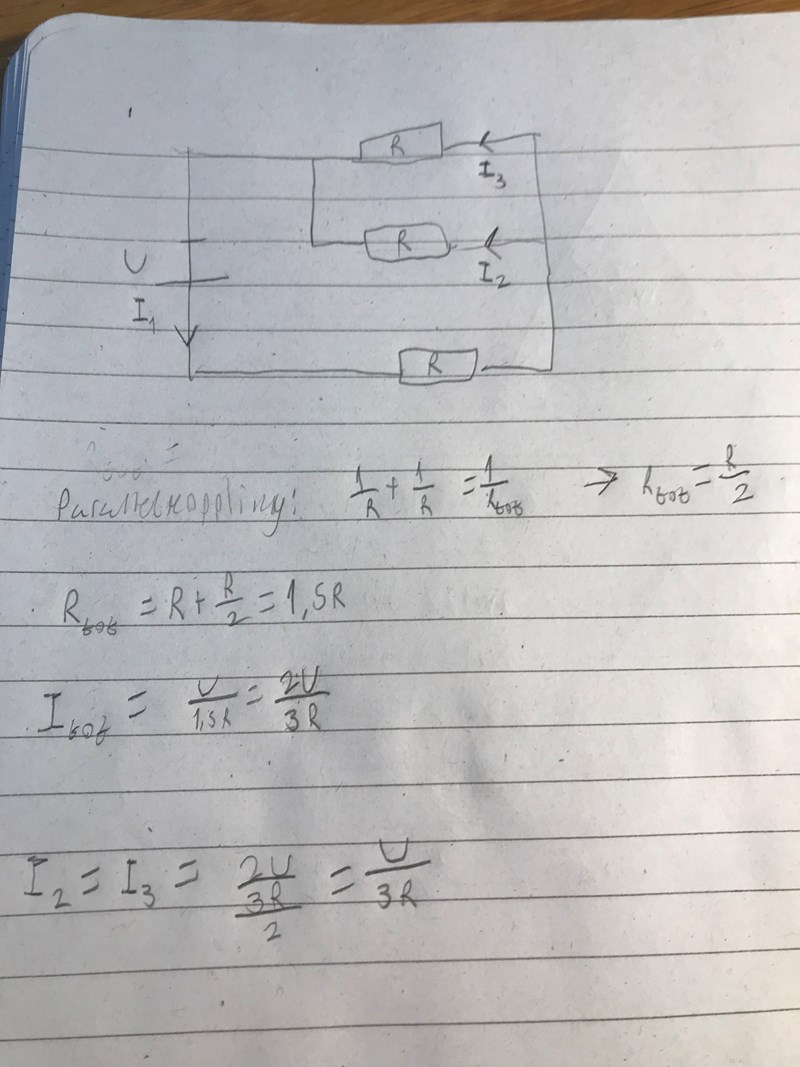 R
I₃
R
U
I₂
I₁
R
Parallellkoppling: 1/R + 1/R = 1/Rtot → Rtot = R/2
Rtot = R + R/2 = 1,5R
Itot = U/1,5R = 2U/3R
I₂ = I₃ = 2U/3R/2 = U/3R